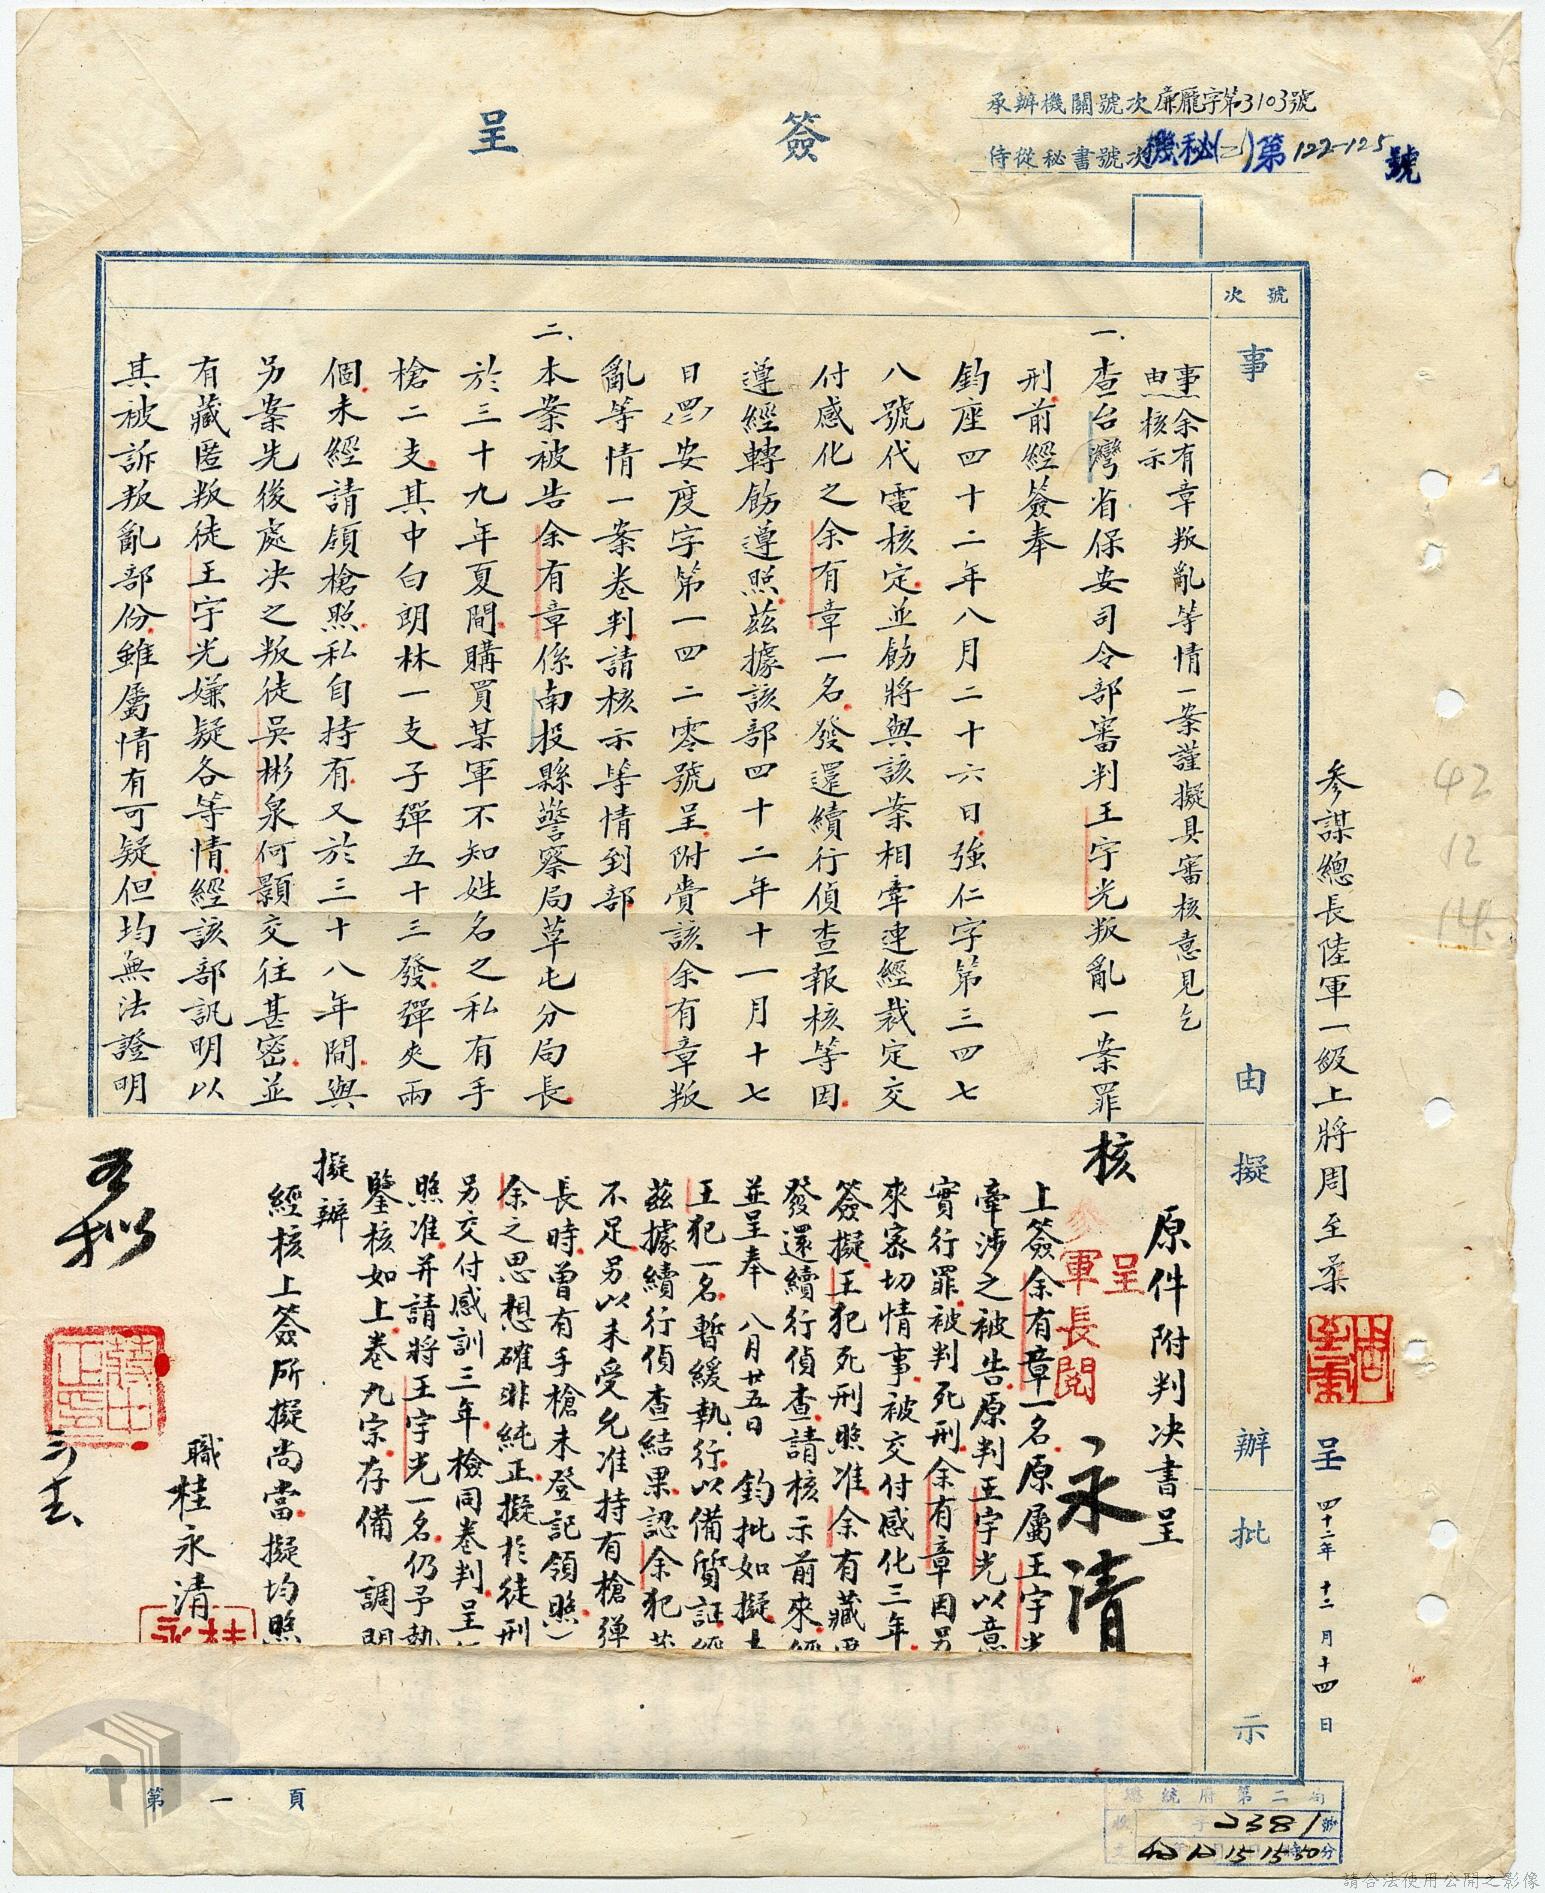 簽呈
承辦機關號次廉龐字第3103號
侍從秘書號次機秘(二)第122-125號
號次
事由
擬辦
批示
參謀總長陸軍一級上將周至柔
呈
四十二年十二月十四日
42
12
14
事由
余有章叛亂等情一案謹擬具審核意見乞
核示
一、查台灣省保安司令部審判王宇光叛亂一案罪
刑前經簽奉
鈞座四十二年八月二十六日強仁字第三四七
八號代電核定並飭將與該案相牽連經裁定交
付感化之余有章一名發還續行偵查報核等因
遵經轉飭遵照茲據該部四十二年十一月十七
日(四二)安度字第一四二零號呈附賷該余有章叛
亂等情一案卷判請核示等情到部
二、本案被告余有章係南投縣警察局草屯分局長
於三十九年夏間購買某軍不知姓名之私有手
槍二支其中白朗林一支子彈五十三發彈夾兩
個未經請領槍照私自持有又於三十八年間與
另案先後處決之叛徒吳彬泉何顥交往甚密並
有藏匿叛徒王宇光嫌疑各等情經該部訊明以
其被訴叛亂部份雖屬情有可疑但均無法證明
原件附判決書呈
核
呈
參軍長閱
永清
上簽余有章一名原屬王宇光
牽涉之被告原判王宇光以意
實行罪被判死刑余有章因另
來密切情事被交付感化三年
簽擬王犯死刑照准余有藏匿
發還續行偵查請核示前來經
並呈奉 八月廿五日 鈞批如擬
王犯一名暫緩執行以備質証經
茲據續行偵查結果認余犯
不足另以未受允准持有槍彈
長時曾有手槍未登記領照)
余之思想確非純正擬於徒刑
另交付感訓三年檢同卷判呈
照准并請將王宇光一名仍予執
鑒核如上卷九宗存備 調閱
擬辦
經核上簽所擬尚當擬均照
職桂永清
如擬
第一頁
總統府第二局
收文 字2381號
42 12 15 15時50分
請合法使用公開之影像